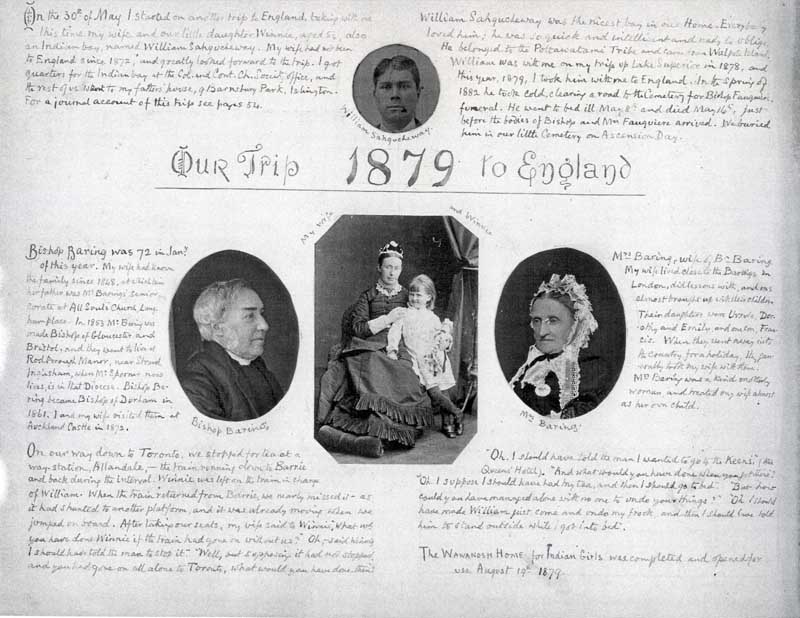 On the 30th of May I started on another trip to England, taking with me
this time my wife and our little daughter Winnie, aged 5½, also
an Indian boy, named William Sahguchewav. My wife had not been
to England since 1872, and greatly looked forward to the trip. I got
quarters for the Indian boy at the Col. and Cont. Ch. Society office, and
the rest of us went to my father's house, 9 Barnsbury Park, Islington.
For a journal account of this trip see pages 54.
William Sahgucheway.
William Sahgucheway was the nicest boy in our Home. Everybody
loved him; he was so quick and intelligent and ready to oblige.
He belonged to the Pottawatami Tribe and came from Walpole Island.
William was with me on my trip up Lake Superior in 1878, and
this year, 1879, I took him with me to England. In the Spring of
1882 he took cold, clearing a road to the Cemetery for Bishop Fauquier's
funeral. He went to bed ill May 8th and died May 16th, just
before the bodies of Bishop and Mrs Fauquiere arrived. We buried
him in our little Cemetery on Ascension Day.
Our Trip 1879 to England
Bishop Baring was 72 in Jany
of this year. My wife had known
the family since 1848, at which time
her father was Mr Baring's senior
curate at All Souls Church, Lang
ham place. In 1853 Mr Baring was
made Bishop of Gloucester and
Bristol, and they went to live at
Rodborough Manor, near Stroud
, when Mr now
lives, is in that Diocese. Bishop Ba-
ring became Bishop of Durham in
1861. I and my wife visited them at
Auckland Castle in 1872.
Bishop Baring
My wife and Winnie
Mrs Baring
Mrs Baring, wife of Bp Baring
My wife lived close to the Barings in
London, did lessons with, and was
almost brought up with their children.
Their daughters were Dor-
othy, and Emily, and one son, Fran-
cis. When they went away into
the country for a holiday, they gen-
erally took my wife with them.
Mrs Baring was a kind motherly
woman and treated my wife almost
as her own child.
On our way down to Toronto, we stopped for tea at a
way station, Allandale, – the train running down to Barrie
and back during the interval. Winnie was left on the train in charge
of William. When the train returned from Barrie, we nearly missed it – as
it had shunted to another platform, and it was already moving when we
jumped on board. After taking our seats, my wife said to Winnie, "What wd
you have done Winnie if the train had gone on without us?" Oh – said Winnie
I should have told the man to stop it." "Well, but supposing it had not stopped,
and you had gone on all alone to Toronto, what would you have done then?
"Oh, I should have told the man I wanted to go to the Keens" (the
Queens' Hotel). "And what would you have done when you got there?"
"Oh I suppose I should have had my tea, and then I should go to bed". "But how
could you have managed alone with no one to undo your things?" "Oh I should
have made William just come and undo my frock, and then I should have told
him to stand outside while I got into bed".
The Wawanosh Home for Indian Girls was completed and opened for
use August 19th 1879.